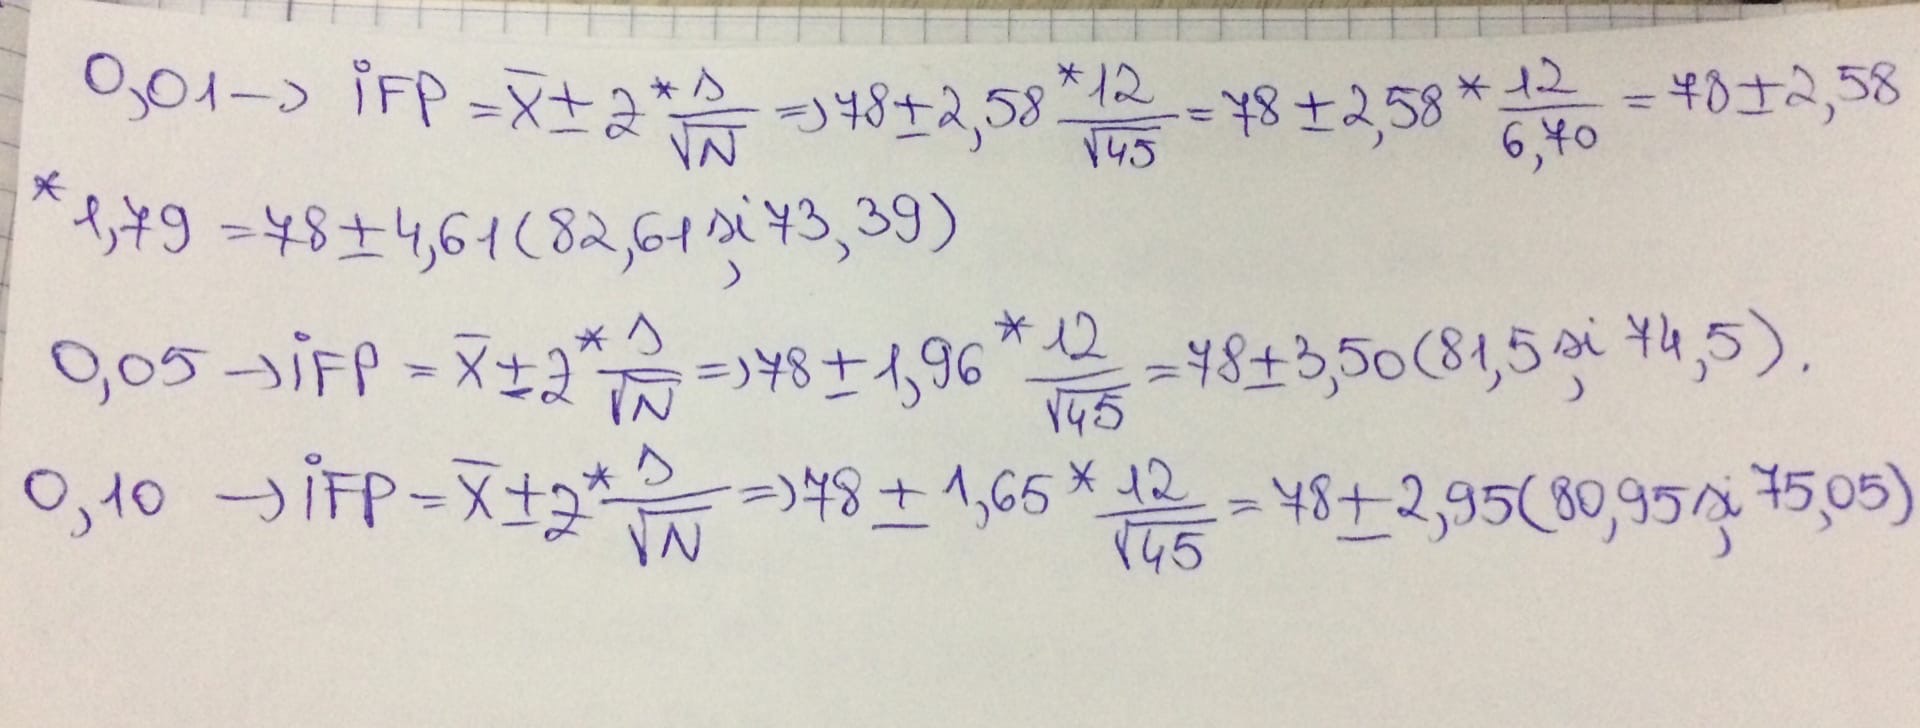 0,01 -> iFP = x̄ ± z * s/√N => 78 ± 2,58 * 12/√45 = 78 ± 2,58 * 12/6,70 = 78 ± 2,58
* 1,79 = 78 ± 4,61 (82,61 și 73,39)
0,05 -> iFP = x̄ ± z * s/√N => 78 ± 1,96 * 12/√45 = 78 ± 3,50 (81,5 și 74,5).
0,10 -> iFP = x̄ ± z * s/√N => 78 ± 1,65 * 12/√45 = 78 ± 2,95 (80,95 și 75,05)